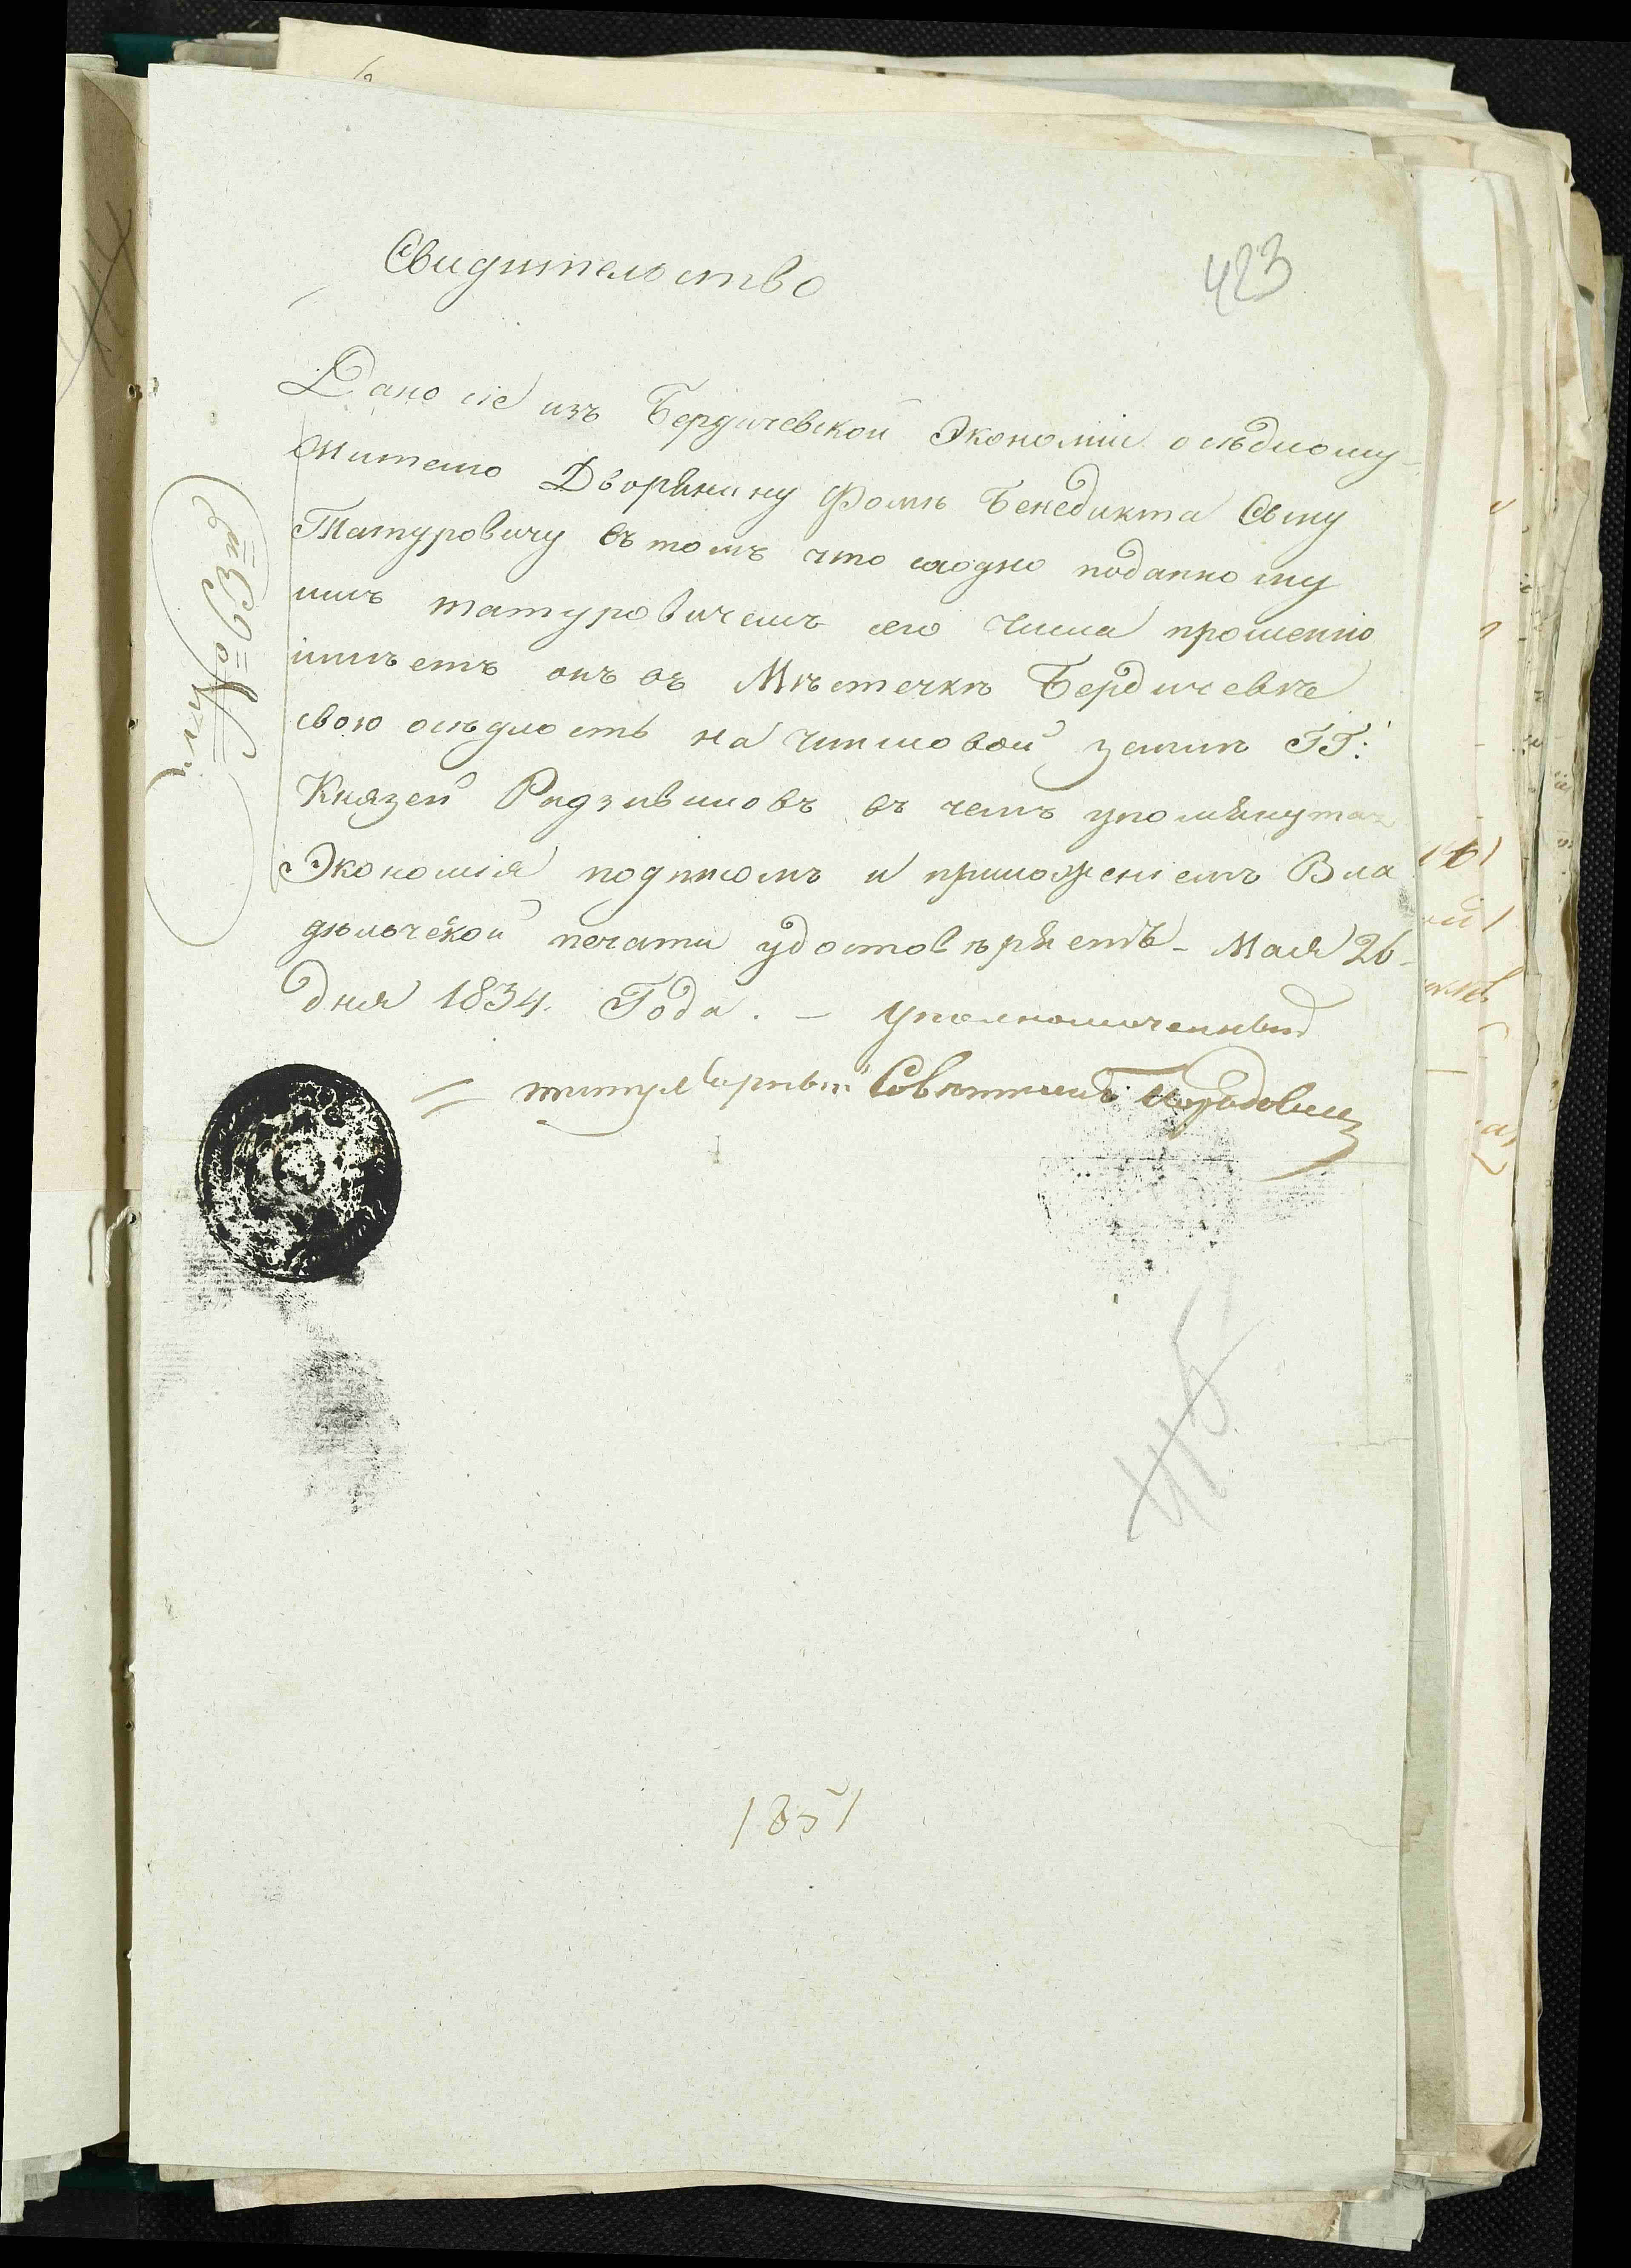 423
Свидительство
Дано сіе изъ Бердичевской Экономіи осѣдлому
Жителю Дворянину Фомѣ Бенедикта Сыну
Татуровичу въ томъ что сходно поданному
имъ Татуровичемъ сего числа прошенію
имѣетъ онъ въ Мѣстечкѣ Бердичевѣ
свою осѣдлость на чиншовой землѣ ГГ:
Князей Радзивиловъ въ чемъ упомянутая
Экономія подписомъ и приложеніемъ Вла
дѣльческой печати удостовѣряетъ - Мая 26
дня 1834. Года. - Уполномоченный
титулярный Совѣтникъ
415
1851